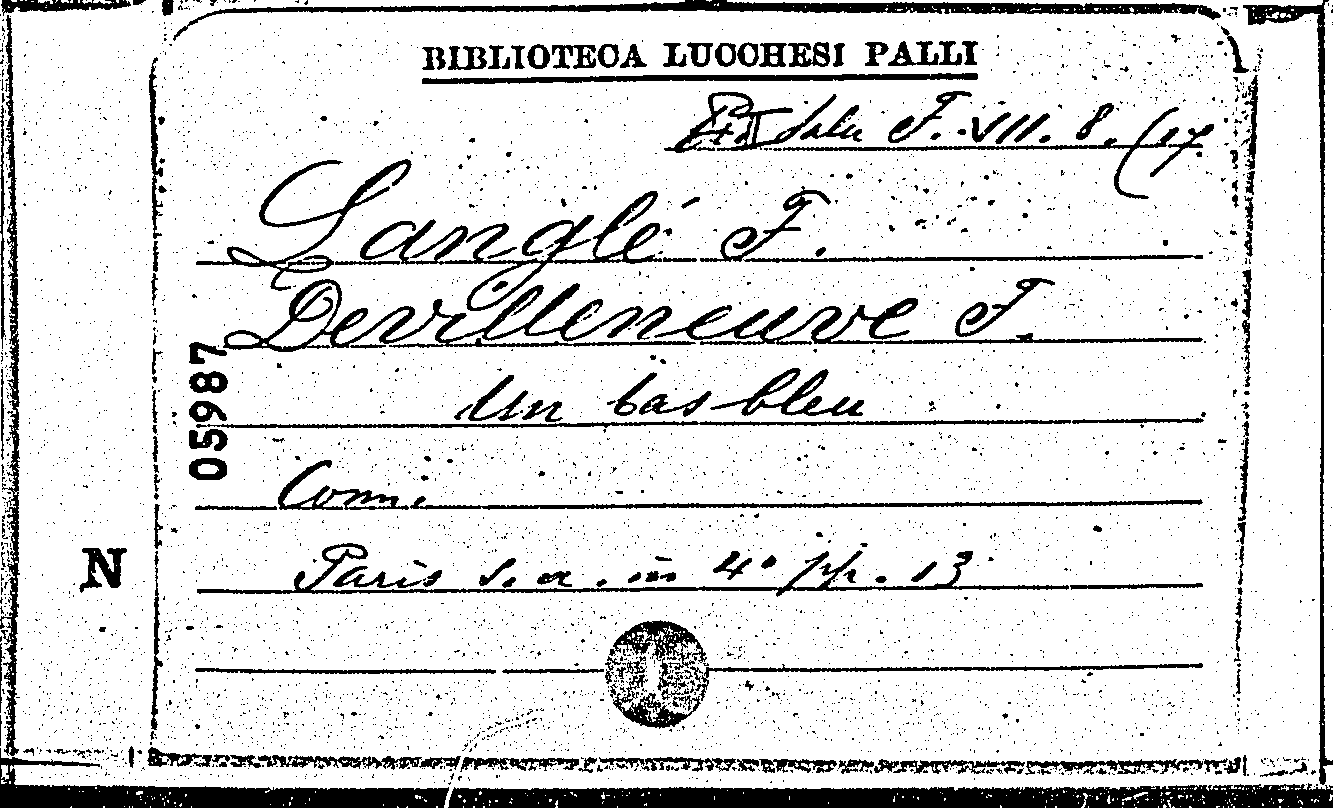 BIBLIOTECA LUCCHESI PALLI
Sala F. VII. 8. (17
Langlé F.
Devilleneuve F.
Un bas-bleu
05987
Com.
N
Paris s. a. in 4° pp. 13